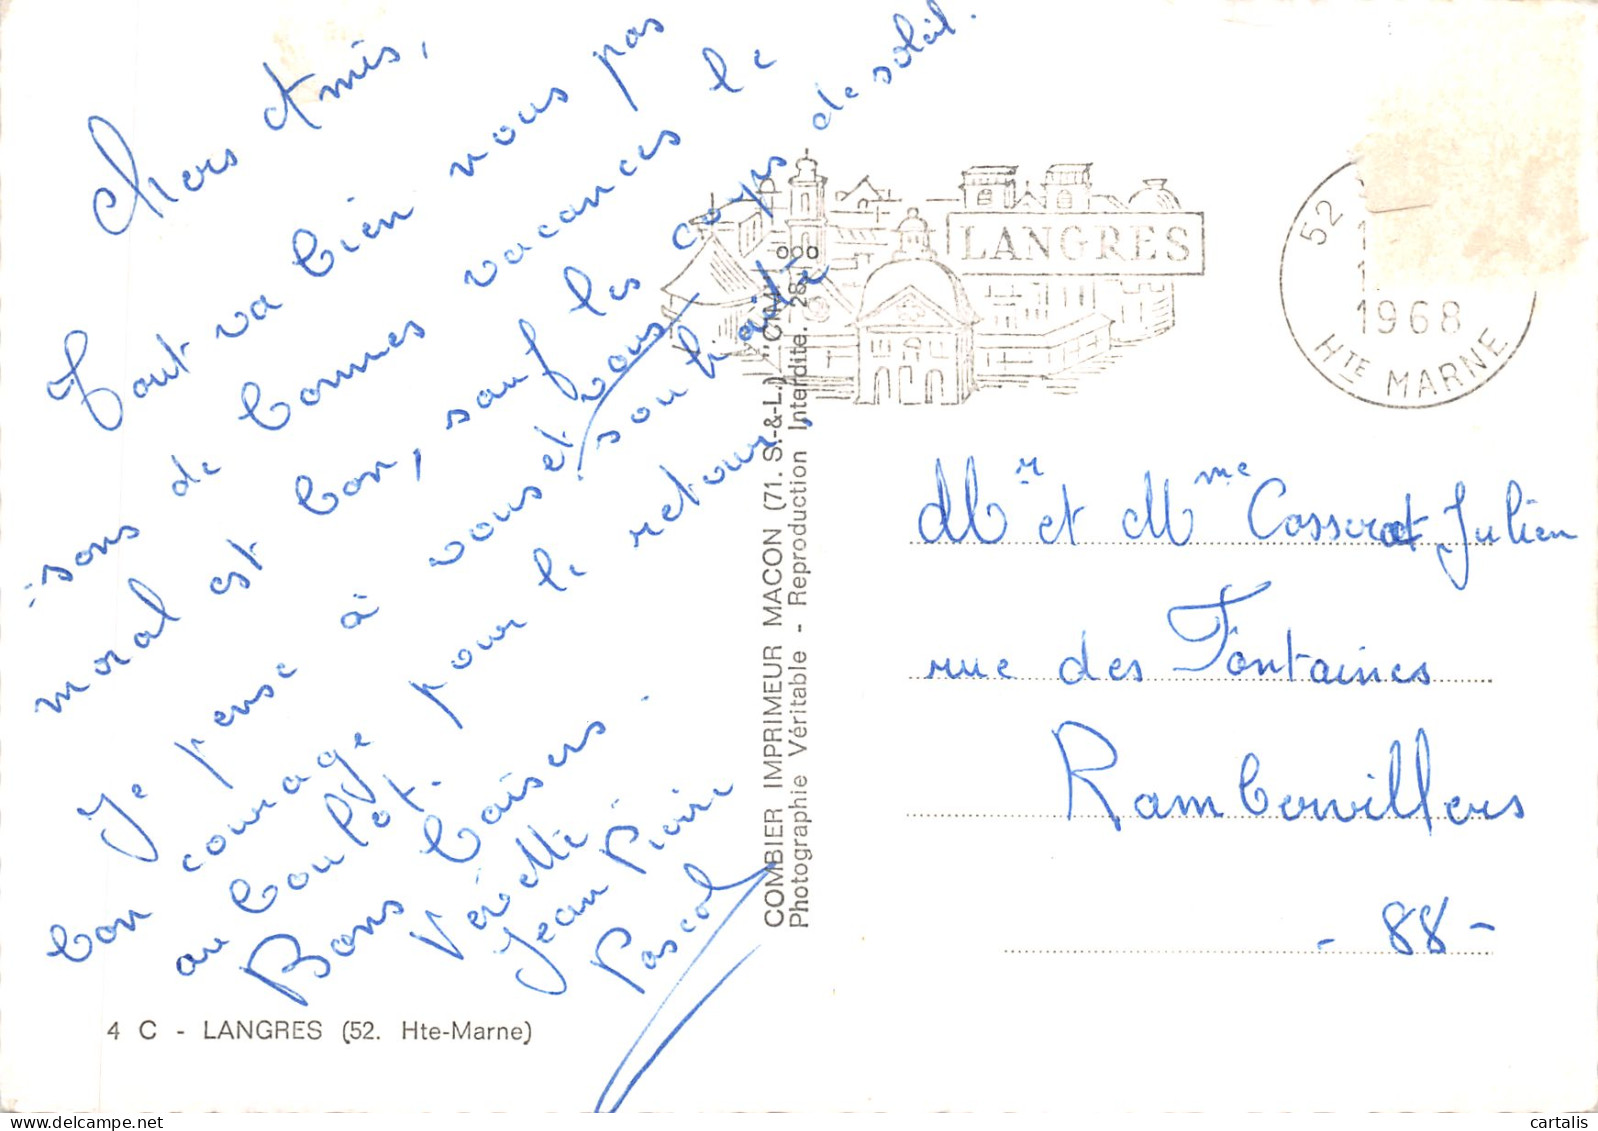 Chers Amis,
Tout va bien nous pas
-sons de bonnes vacances le
moral est bon, sauf les coups de soleil.
Je pense à vous et vous souhaite
bon courage pour le retour
au boulot.
Bons baisers.
Jean Pierre
Pascal
4 C - LANGRES (52. Hte-Marne)
COMBIER IMPRIMEUR MACON (71. S.-&-L.) "CIM"
Photographie Véritable - Reproduction Interdite. 28
LANGRES
52
1968
HTE MARNE
Mr et Mme Casserat Julien
rue des Fontaines
Rambervillers
- 88 -
delcampe.net
cartalis